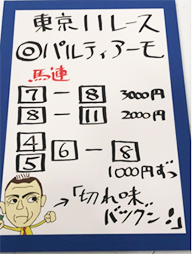 東京11レース
◎パルティアーモ
馬連
7－8 3000円
8－11 2000円
4
5 6－8
1000円ずつ
→「切れ味
バツグン!」